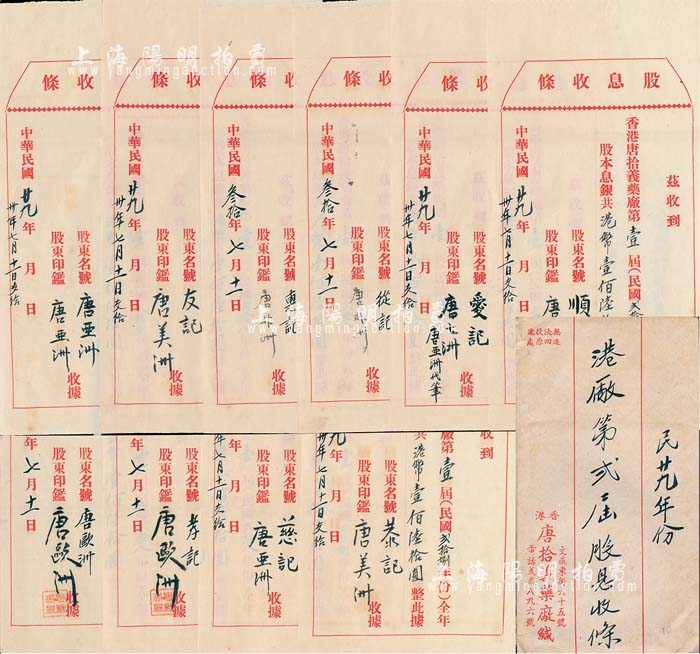 上海陽明拍賣
www.yangmingauction.com
股息收條
茲收到
香港唐拾義藥廠第壹屆(民國
股本息銀共港幣壹佰陸
股東名號 順
股東印鑑 唐
中華民國廿九年 月 日
卅年七月十一日支給
收條
股東名號 愛記
股東印鑑 唐亞洲代筆
收據
中華民國廿九年 月 日
卅年七月十一日支給
收條
股東名號 從記
股東印鑑
收據
中華民國叁拾年七月十一日
收條
股東名號
股東印鑑
收據
中華民國叁拾年七月十一日
收條
股東名號 友記
股東印鑑 唐美洲
收據
中華民國廿九年 月 日
卅年七月十一日支給
收條
股東名號 唐亞洲
股東印鑑 唐亞洲
收據
中華民國廿九年 月 日
卅年七月十一日支給
民廿九年份
港廠第弍屆股息收條
香港 唐拾義藥廠緘
文咸東街六十五號
無法投遞
退回原處
收到
廠第壹屆(民國貳拾捌年份)全年
共港幣壹佰陸拾圓 整此據
股東名號 恭記
股東印鑑 唐美洲
收據
九年 月 日
卅年七月十一日支給
股東名號 慈記
股東印鑑 唐亞洲
收據
年 月 日
七月十一日支給
股東名號 孝記
股東印鑑 唐歐洲
收據
年七月十一日
股東名號 唐歐洲
股東印鑑 唐歐洲
收據
年七月十一日
上海陽明拍賣
www.yangmingauction.com